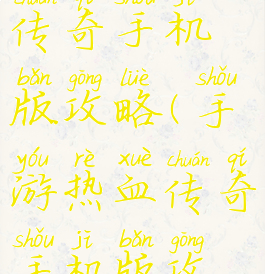 chuán qí shǒu jī
传奇手机
bǎn gōng lüè shǒu
版攻略(手
yóu rè xuè chuán qí
游热血传奇
shǒu jī bǎn gōng
手机版攻